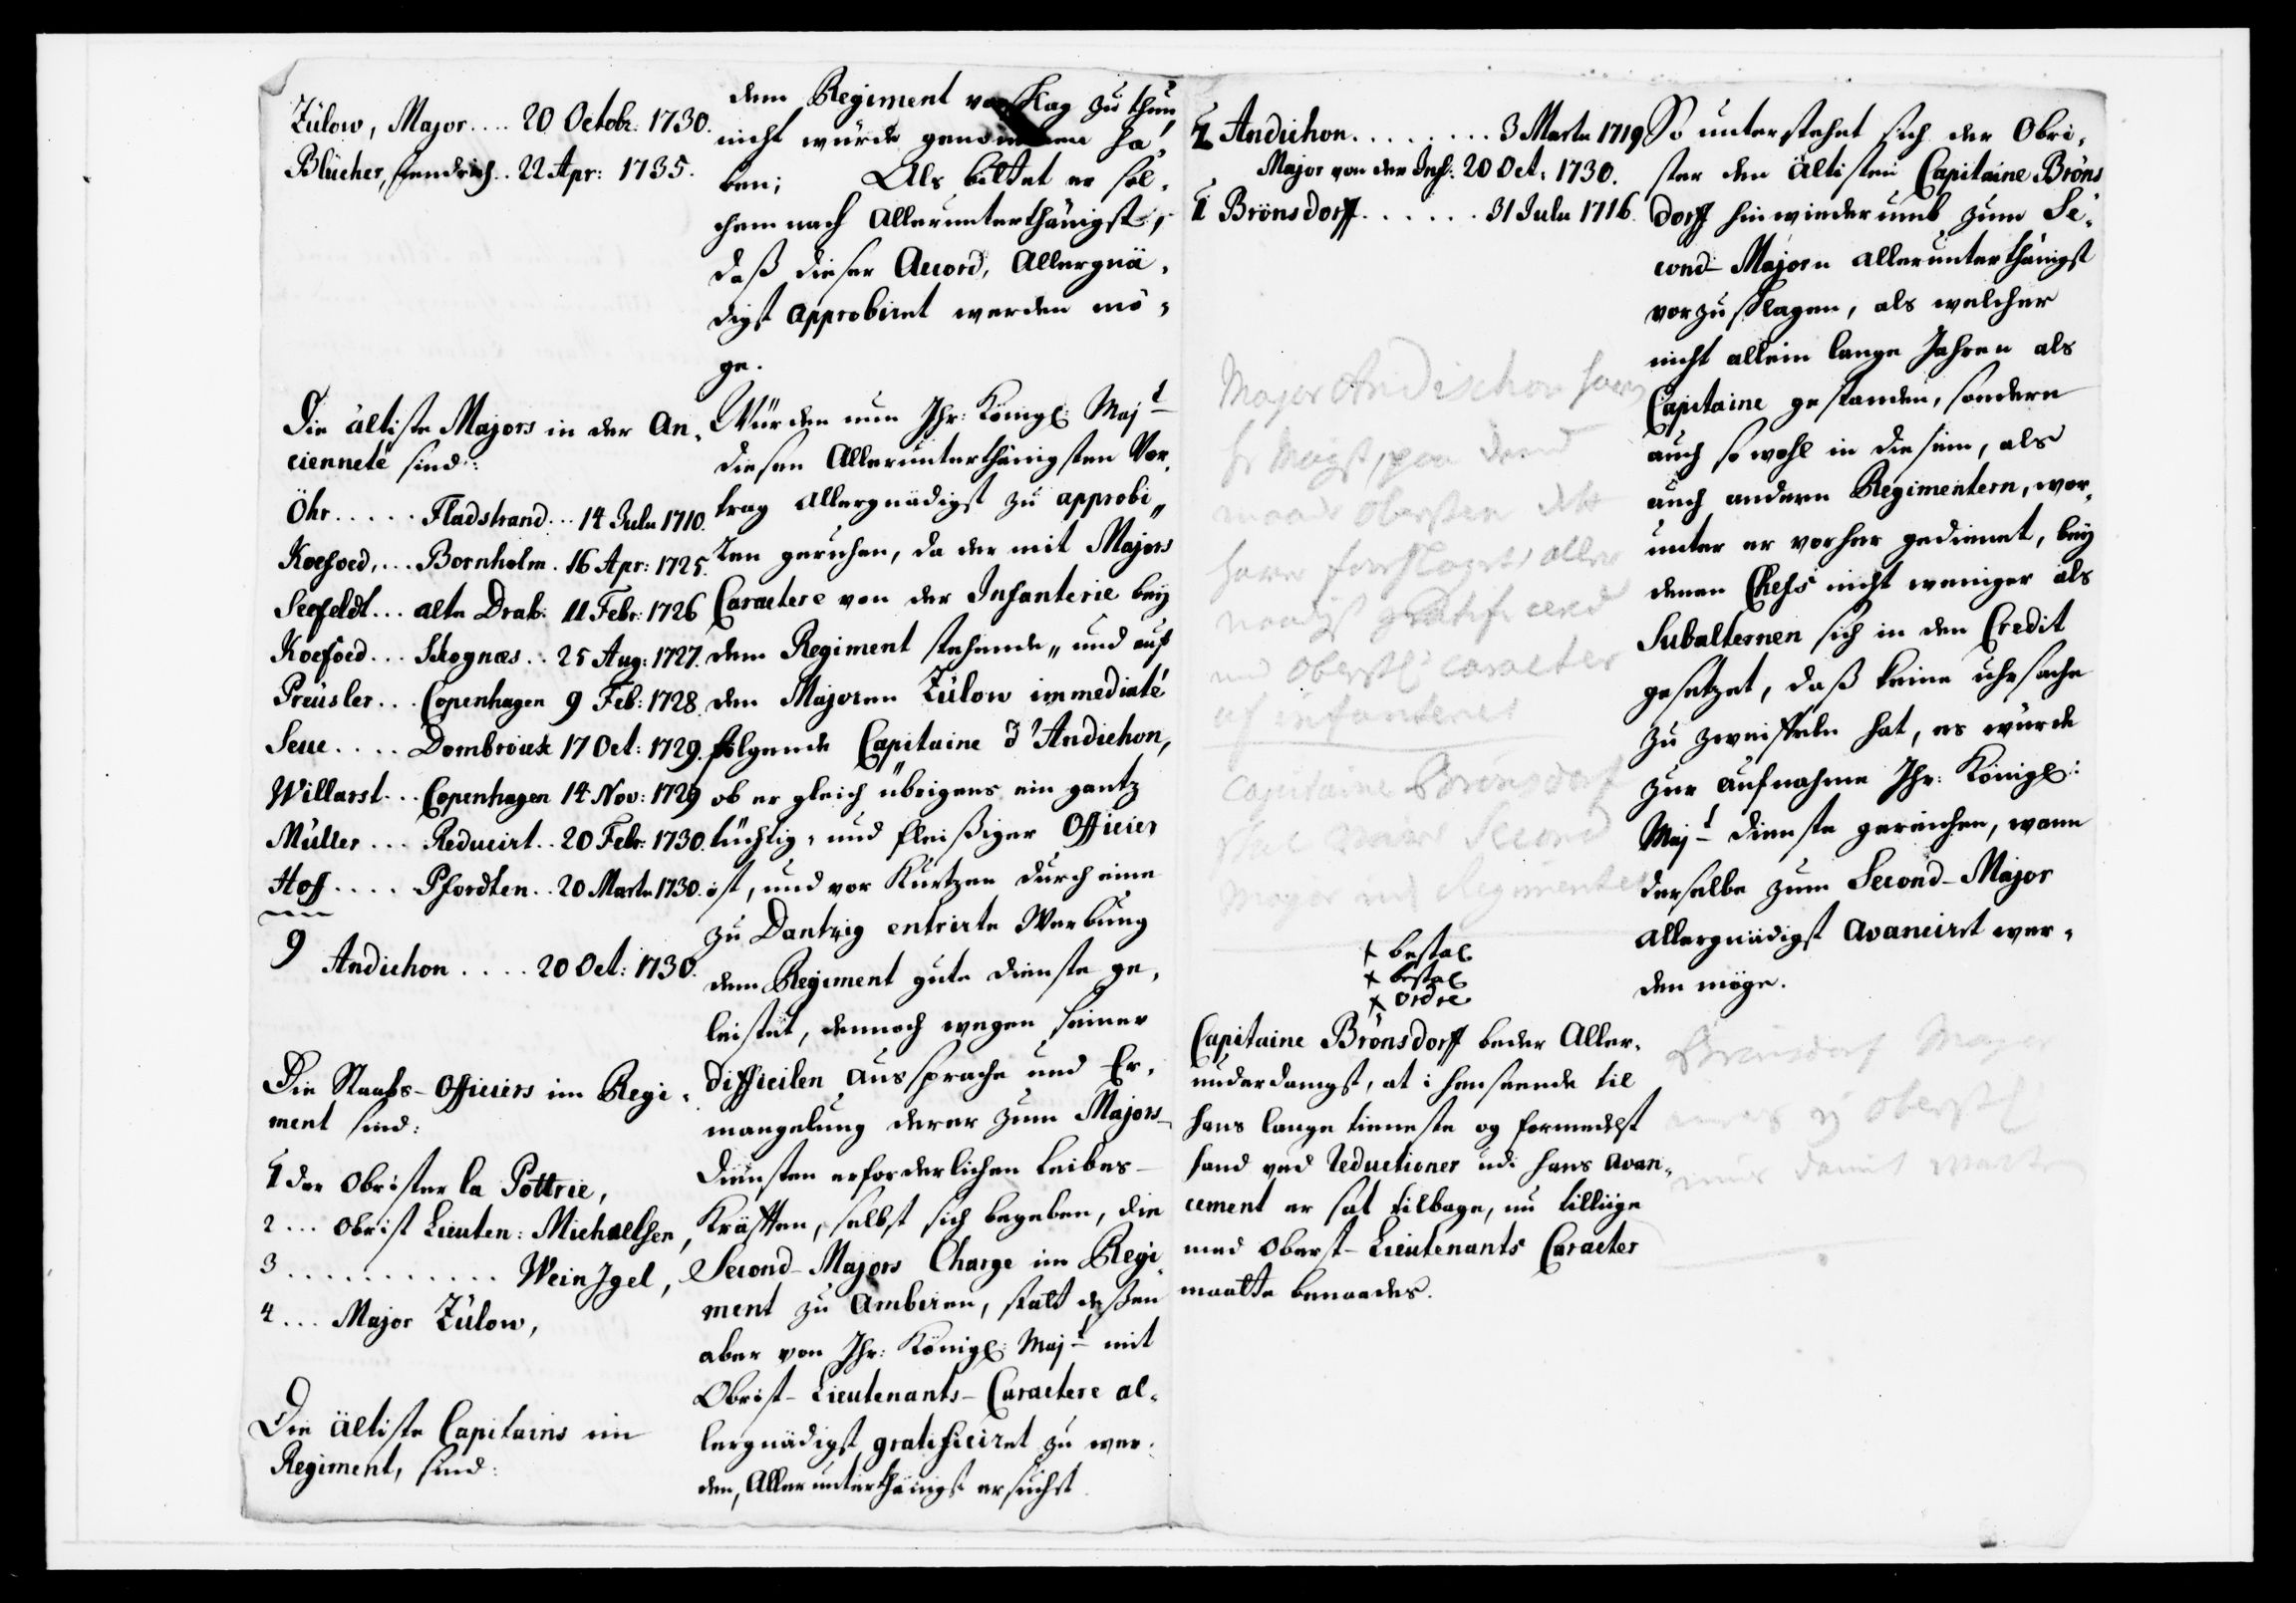 Zülow, Major.... 20 Octobr: 1730.
Blücher, Fendrich.. 22 Apr: 1735.
Die ältiste Majors in der An-
cienneté sind:
Öhr..... Fladstrand... 14 Julii 1710.
Koefoed,... Bornholm. 16 Apr: 1725.
Seefeldt... alte Drab: 11 Febr: 1726
Koefoed... Skognæs.. 25 Aug: 1727.
Preüsler... Copenhagen 9 Feb: 1728.
Seue.... 17 Oct: 1729.
Willarst... Copenhagen 14 Nov: 1729
Müller... Reducirt.. 20 Febr: 1730.
Hoff.... Pfordten.. 20 Martii 1730.
9
Andichon.... 20 Oct: 1730.
Die Staabs-Officiers im Regi-
ment sind:
1 der Obrister la Pottrie,
2... Obrist Lieuten: Michaelsen,
3............ WeinIgel,
4... Major Zülow,
Die ältiste Capitains im
Regiment, sind:
dem Regiment vorschlag zu thun
nicht würde genommen ha-
ben; Als bittet er sol-
chem nach Allerunterthänigst,
daß dieser Accord, Allergnä-
digst approbiret werden mö-
ge.
Würden nun Ihr: Königl: Majt
diesen Allerunterthänigsten Vor-
trag Allergnädigst zu approbi-
ren geruhen, da der mit Majors
Caractere von der Infanterie bey
dem Regiment stehende, und auf
den Majoren Zülow immediaté
folgende Capitaine d'Andichon,
ob er gleich übrigens ein gantz
tüchtig- und fleißiger Officier
ist, und vor Kurtzen durch eine
zu Dantzig entrirte Werbung
dem Regiment gute dienste ge-
leistet, dennoch wegen seiner
difficilen Aussprache und Er-
mangelung derer zum Majors-
Diensten erforderlichen Leibes-
Kräfften, selbst sich begeben, die
Second-Majors Charge im Regi-
ment zu ambiren, statt deßen
aber von Ihr: Königl: Majt mit
Obrist-Lieutenants-Caractere al-
lergnädigst gratificiret zu wer-
den, Allerunterthänigst ersucht.
2 Andichon........ 3 Martii 1719
Major von der Inf: 20 Oct: 1730.
1 Brönsdorff...... 31 Julii 1716.
Major Andischon
maae Obersten
have forschlaget aller
naadigst
Oberstl caracter
af infanteriet
Capitaine Brönsdorf
skal være Second
Major ved Regimentet
+ bestal
+ bestal
+ ordre
Capitaine Brönsdorff beder Aller-
underdanigst, at i henseende til
hans lange tieneste og formedelst
hand ved Reductioner udi hans Avan-
cement er sat tilbage, nu tillige
med Oberst-Lieutenants Caracter
maatte benaades.
So unterstehet sich der Obri-
ster den Ältisten Capitaine Bröns
dorff hinwiederumb zum Se-
cond-Majorn allerunterthänigst
vorzuschlagen, als welcher
nicht allein lange Jahren als
Capitaine gestanden, sondern
auch so wohl in diesem, als
auch andern Regimentern, wor-
unter er vorher gedienet, bey
denen Chefs nicht weniger als
Subalternen sich in den Credit
gesetzet, daß keine uhrsache
zu zweiffeln hat, es würde
zur aufnahme Ihr: Königl:
Majt dienste gereichen, wann
derselbe zum Second-Major
Allergnädigst Avanciret wer-
den möge.
Brönsdorf Major
Oberstl